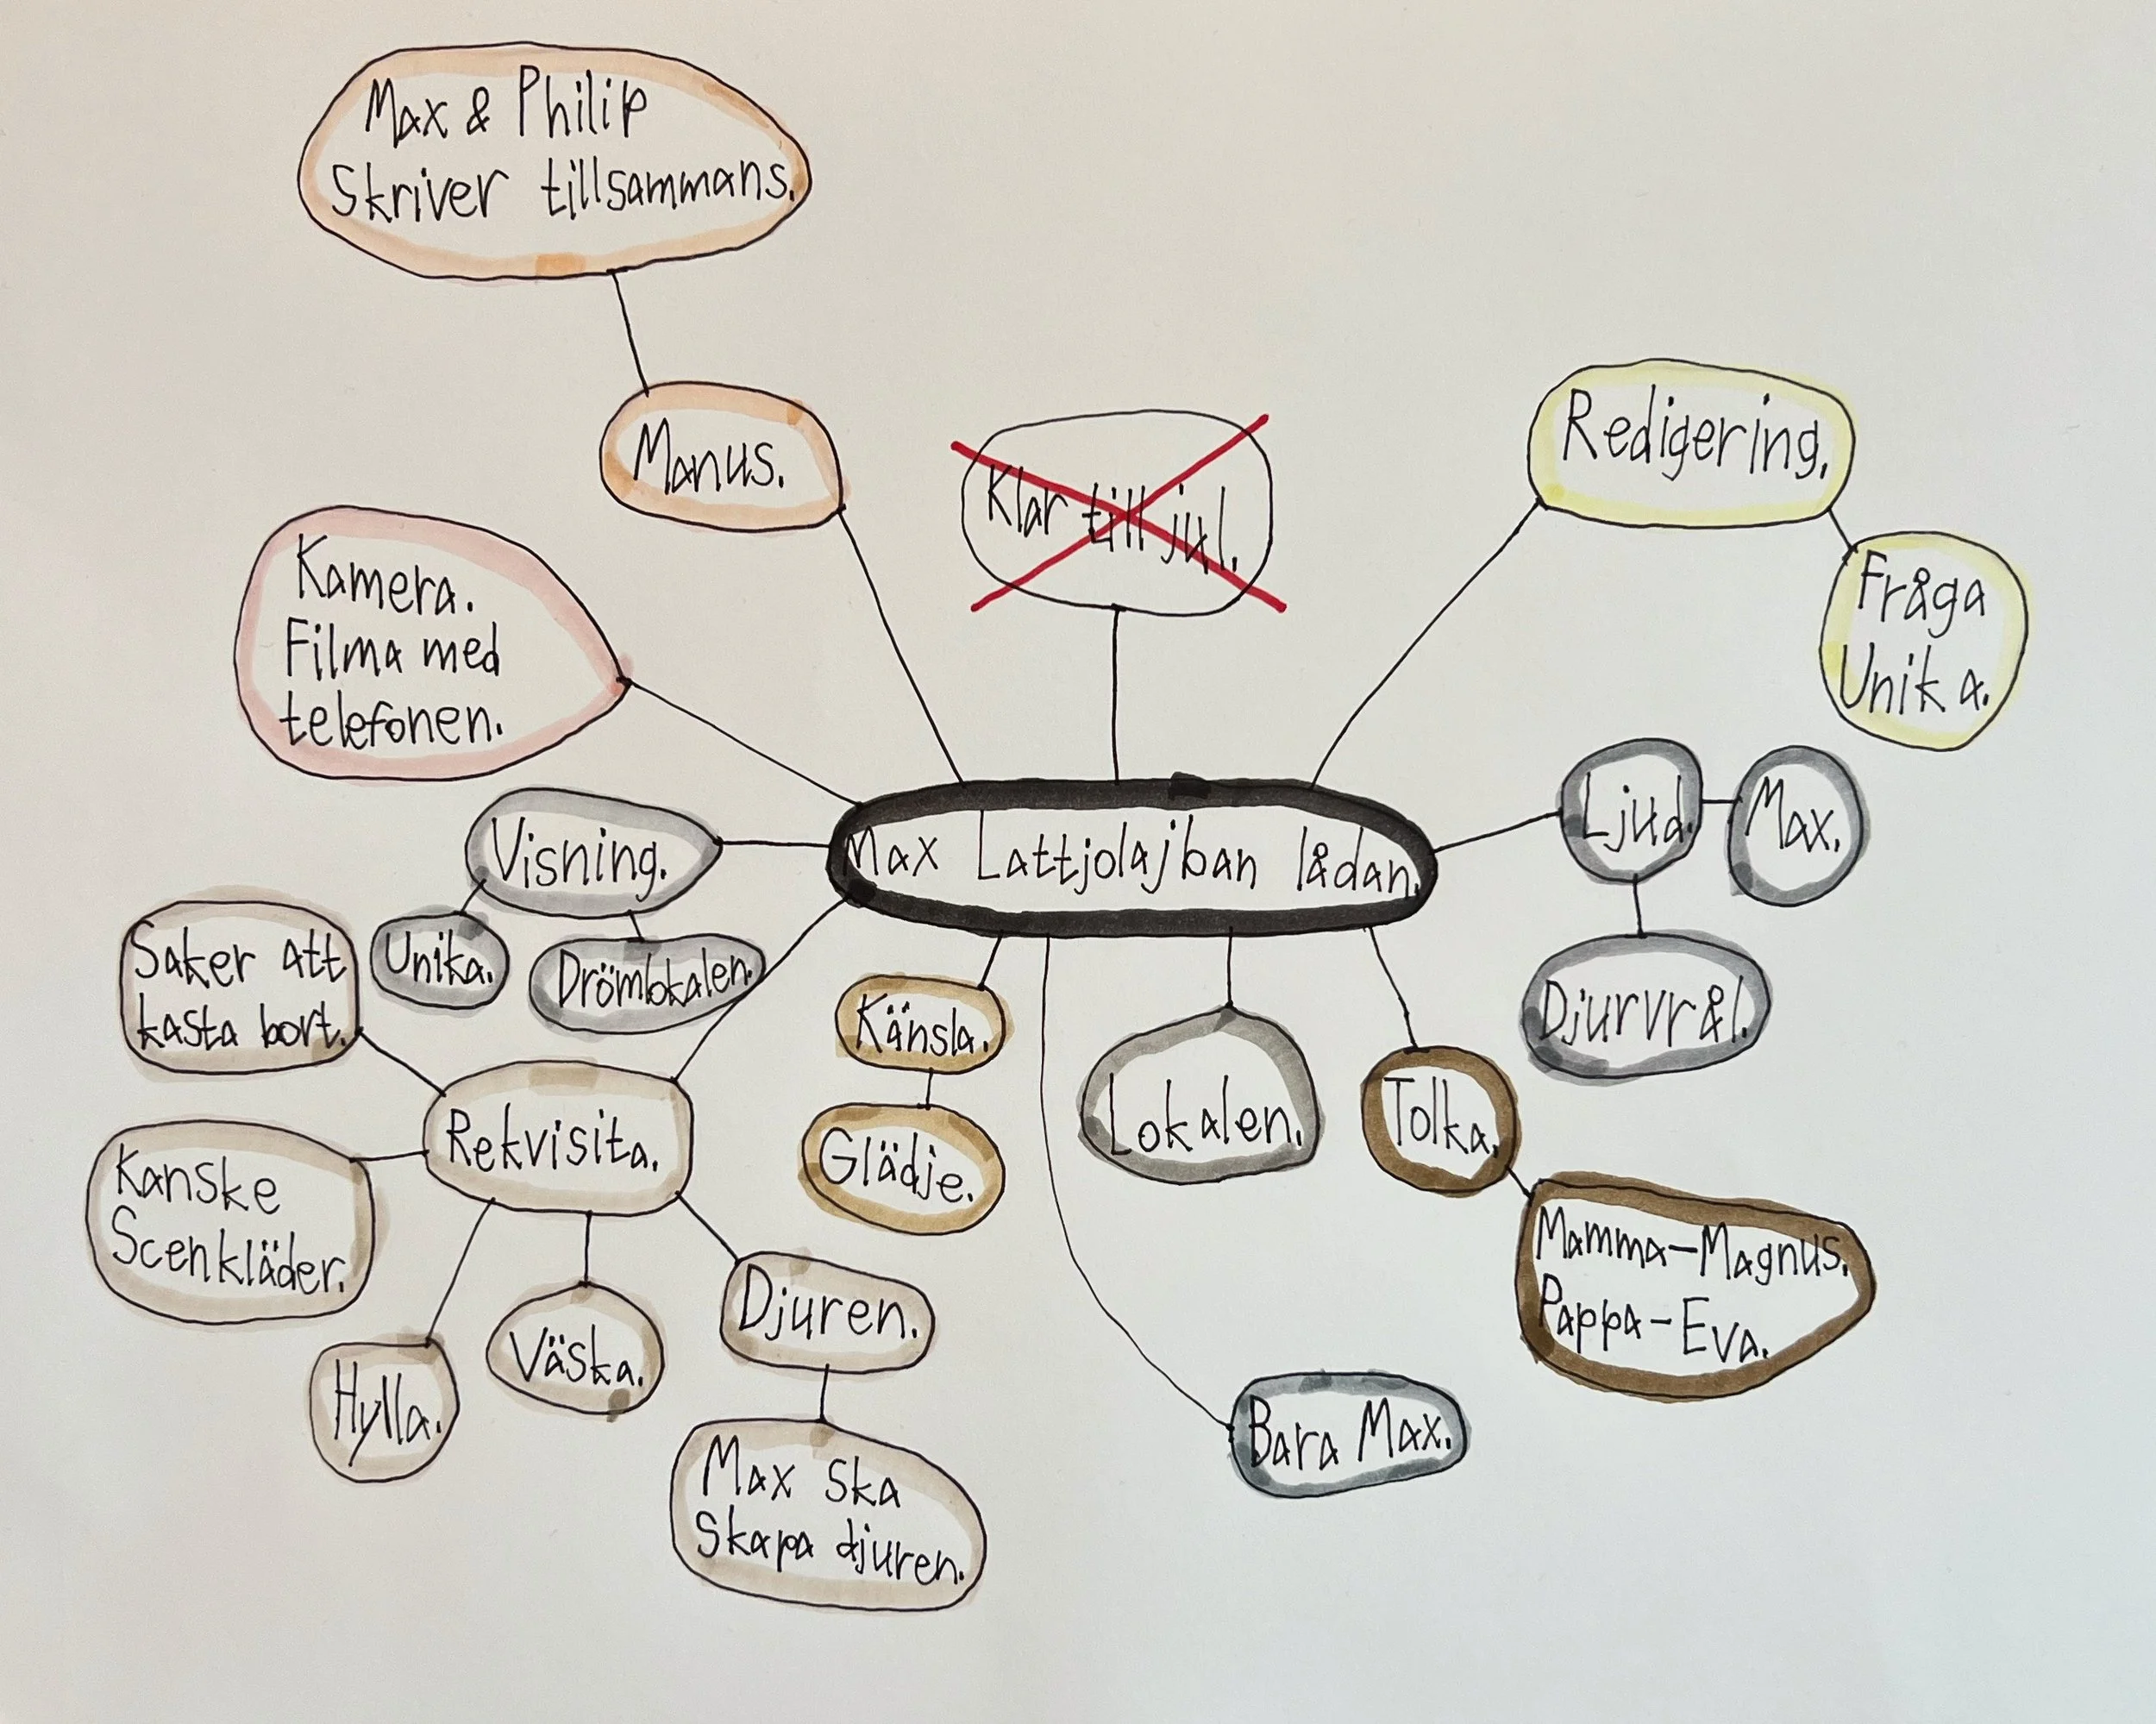 Max & Philip
Skriver tillsammans.
Manus.
Klar till jul.
Redigering.
Fråga
Unika.
Kamera.
Filma med
telefonen.
Ljud.
Max.
Visning.
Max Lattjolajban lådan.
Unika.
Drömlokalen.
Djurvrål.
Saker att
kasta bort.
Känsla.
Lokalen.
Tolka.
Rekvisita.
Glädje.
Kanske
Scenkläder.
Mamma-Magnus.
Pappa-Eva.
Djuren.
Väska.
Hylla.
Bara Max.
Max ska
Skapa djuren.